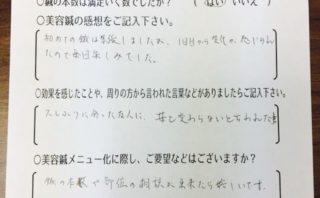 ○鍼の本数は満足いく数でしたか？　（　はい　いいえ　）
○美容鍼の感想をご記入下さい。
初めての鍼は緊張しましたが、1日目から変化が感じられ
たので毎回楽しみでした。
○効果を感じたことや、周りの方から言われた言葉などがありましたらご記入下さい。
久しぶりに会った友人に、昔と変わらないと言われた
○美容鍼メニュー化に際し、ご要望などはございますか？
鍼の本数や部位の相談が出来たら嬉しいです。